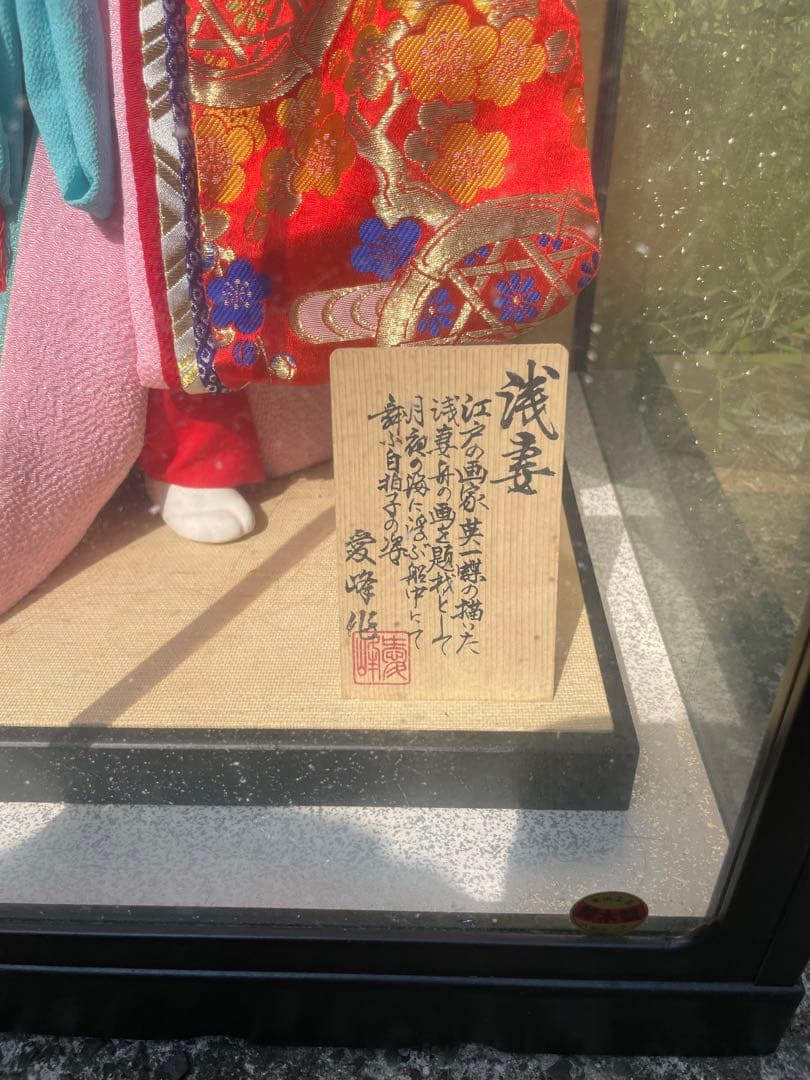 浅妻
江戸の画家 英一蝶の描いた
浅妻舟の画を題材として
月夜の海に浮ぶ船中にて
舞ふ白拍子の姿
愛峰作
愛峰